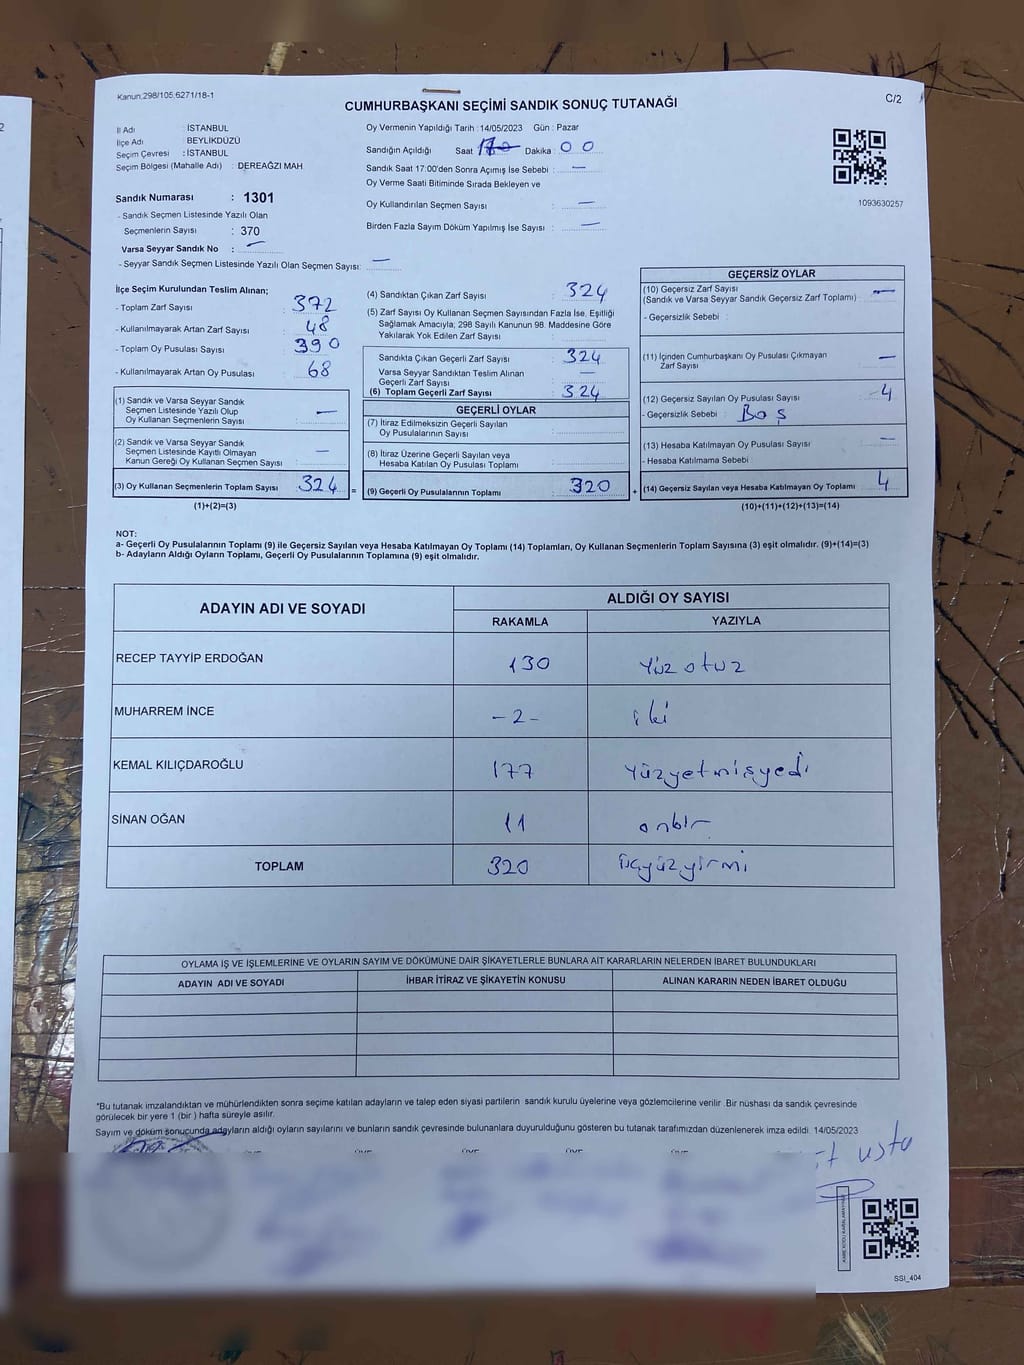 Kanun:298/105,6271/18-1
C/2
CUMHURBAŞKANI SEÇİMİ SANDIK SONUÇ TUTANAĞI
İl Adı : İSTANBUL
İlçe Adı : BEYLİKDÜZÜ
Seçim Çevresi : İSTANBUL
Seçim Bölgesi (Mahalle Adı) : DEREAĞZI MAH
Sandık Numarası : 1301
- Sandık Seçmen Listesinde Yazılı Olan
Seçmenlerin Sayısı : 370
Varsa Seyyar Sandık No : —
- Seyyar Sandık Seçmen Listesinde Yazılı Olan Seçmen Sayısı: —
Oy Vermenin Yapıldığı Tarih : 14/05/2023 Gün : Pazar
Sandığın Açıldığı Saat Dakika : 00
Sandık Saat 17:00'den Sonra Açımış İse Sebebi : —
Oy Verme Saati Bitiminde Sırada Bekleyen ve
Oy Kullandırılan Seçmen Sayısı : —
Birden Fazla Sayım Döküm Yapılmış İse Sayısı : —
1093630257
İlçe Seçim Kurulundan Teslim Alınan;
- Toplam Zarf Sayısı : 372
- Kullanılmayarak Artan Zarf Sayısı : 48
- Toplam Oy Pusulası Sayısı : 390
- Kullanılmayarak Artan Oy Pusulası : 68
(1) Sandık ve Varsa Seyyar Sandık
Seçmen Listesinde Yazılı Olup
Oy Kullanan Seçmenlerin Sayısı : —
(2) Sandık ve Varsa Seyyar Sandık
Seçmen Listesinde Kayıtlı Olmayan
Kanun Gereği Oy Kullanan Seçmen Sayısı : —
(3) Oy Kullanan Seçmenlerin Toplam Sayısı 324
=
(1)+(2)=(3)
(4) Sandıktan Çıkan Zarf Sayısı : 324
(5) Zarf Sayısı Oy Kullanan Seçmen Sayısından Fazla İse, Eşitliği
Sağlamak Amacıyla; 298 Sayılı Kanunun 98. Maddesine Göre
Yakılarak Yok Edilen Zarf Sayısı :
Sandıkta Çıkan Geçerli Zarf Sayısı : 324
Varsa Seyyar Sandıktan Teslim Alınan
Geçerli Zarf Sayısı : —
(6) Toplam Geçerli Zarf Sayısı : 324
GEÇERLİ OYLAR
(7) İtiraz Edilmeksizin Geçerli Sayılan
Oy Pusulalarının Sayısı :
(8) İtiraz Üzerine Geçerli Sayılan veya
Hesaba Katılan Oy Pusulası Toplamı :
(9) Geçerli Oy Pusulalarının Toplamı : 320
+
GEÇERSİZ OYLAR
(10) Geçersiz Zarf Sayısı
(Sandık ve Varsa Seyyar Sandık Geçersiz Zarf Toplamı) : —
- Geçersizlik Sebebi :
(11) İçinden Cumhurbaşkanı Oy Pusulası Çıkmayan
Zarf Sayısı : —
(12) Geçersiz Sayılan Oy Pusulası Sayısı : 4
- Geçersizlik Sebebi : Boş
(13) Hesaba Katılmayan Oy Pusulası Sayısı : —
- Hesaba Katılmama Sebebi :
(14) Geçersiz Sayılan veya Hesaba Katılmayan Oy Toplamı : 4
(10)+(11)+(12)+(13)=(14)
NOT:
a- Geçerli Oy Pusulalarının Toplamı (9) ile Geçersiz Sayılan veya Hesaba Katılmayan Oy Toplamı (14) Toplamları, Oy Kullanan Seçmenlerin Toplam Sayısına (3) eşit olmalıdır. (9)+(14)=(3)
b- Adayların Aldığı Oyların Toplamı, Geçerli Oy Pusulalarının Toplamına (9) eşit olmalıdır.
ADAYIN ADI VE SOYADI ALDIĞI OY SAYISI
RAKAMLA YAZIYLA
RECEP TAYYİP ERDOĞAN 130 Yüz otuz
MUHARREM İNCE -2- iki
KEMAL KILIÇDAROĞLU 177 Yüzyetmişyedi
SİNAN OĞAN 11 onbir
TOPLAM 320 üçyüzyirmi
OYLAMA İŞ VE İŞLEMLERİNE VE OYLARIN SAYIM VE DÖKÜMÜNE DAİR ŞİKAYETLERLE BUNLARA AİT KARARLARIN NELERDEN İBARET BULUNDUKLARI
ADAYIN ADI VE SOYADI İHBAR İTİRAZ VE ŞİKAYETİN KONUSU ALINAN KARARIN NEDEN İBARET OLDUĞU
*Bu tutanak imzalandıktan ve mühürlendikten sonra seçime katılan adayların ve talep eden siyasi partilerin sandık kurulu üyelerine veya gözlemcilerine verilir .Bir nüshası da sandık çevresinde
görülecek bir yere 1 (bir ) hafta süreyle asılır.
Sayım ve döküm sonucunda adayların aldığı oyların sayılarını ve bunların sandık çevresinde bulunanlara duyurulduğunu gösteren bu tutanak tarafımızdan düzenlenerek imza edildi. 14/05/2023
usta
SSI_404